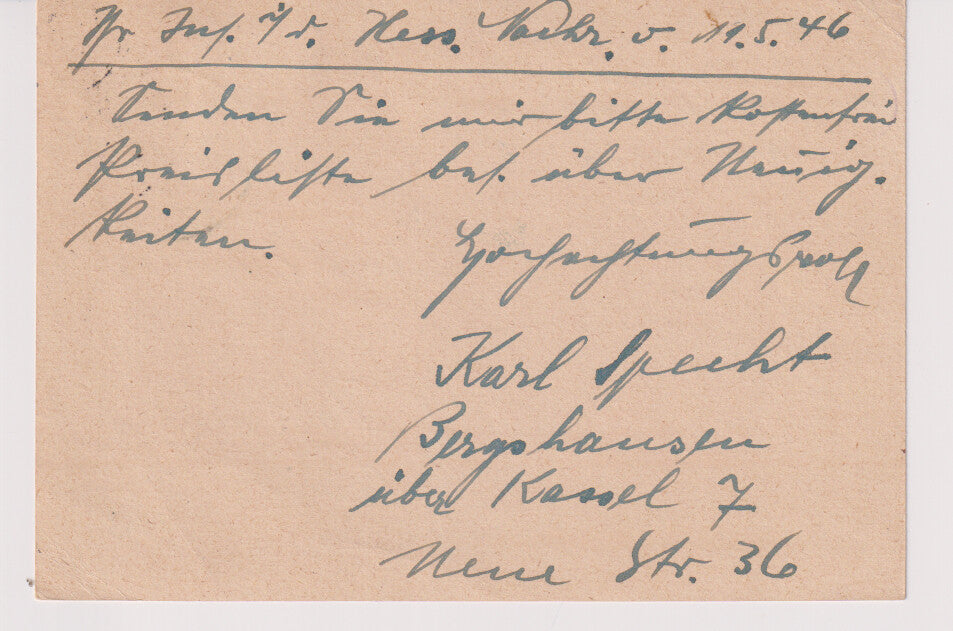 Ihr Ins. i/d. Hess. Nachr. v. 11.5.46
Senden Sie mir bitte kostenfrei
Preisliste bes. über Neuig-
keiten.
Hochachtungsvoll
Karl Specht
Bergshausen
über Kassel 7
Neue Str. 36